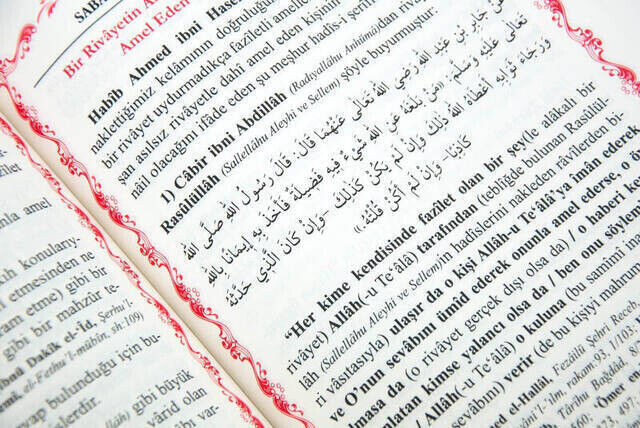 SABA
Bir Rivâyetin A
Amel Eden
Habîb Ahmed ibni Hase
naklettiğimiz kelâmının doğruluğun
bir rivâyet uydurmadıkça faziletli amelle
şan asılsız rivâyetle dahi amel eden kişinin
nâil olacağını ifâde eden şu meşhur hadîs-i şerîf
1) Câbir ibni Abdillâh (Radıyallâhu Anhümâ)dan riv
Rasûlüllâh (Sallellâhu Aleyhi ve Sellem) şöyle buyurmuştur:
عَنْ جَابِرِ بْنِ عَبْدِ اللهِ رَضِيَ اللهُ تَعَالَى عَنْهُمَا قَالَ: قَالَ رَسُولُ اللهِ صَلَّى اللهُ
تَعَالَى عَلَيْهِ وَسَلَّمَ: «مَنْ بَلَغَهُ عَنِ اللهِ شَيْءٌ فِيهِ فَضِيلَةٌ فَأَخَذَ بِهِ إِيمَانًا بِاللهِ
وَرَجَاءَ ثَوَابِهِ أَعْطَاهُ اللهُ ذَلِكَ وَإِنْ لَمْ يَكُنْ كَذَلِكَ – وَإِنْ كَانَ الَّذِي حَدَّثَهُ
كَاذِبًا- وَإِنْ لَمْ أَكُنْ قُلْتُهُ»
“Her kime kendisinde fazîlet olan bir şey(le alâkalı bir
rivâyet) Allâh(-u Te‘âlâ) tarafından (tebliğde bulunan Rasûlül-
lâh (Sallellâhu Aleyhi ve Sellem)in hadîslerini nakleden râvîlerden bi-
ri vâsıtasıyla) ulaşır da o kişi Allâh-u Te‘âlâ’ya îmân ederek
ve O’nun sevâbını ümîd ederek onunla amel ederse, o
lmasa da (o rivâyet gerçek dışı olsa da) / o haberi ke
nlatan kimse yalancı olsa da / ben onu söyle
Allâh(-u Te‘âlâ) o kuluna (bu samîmi in
sevâbını) verir (de bu kişiyi mahrum
ed el-Hallâl, Fezâilü Şehri Recep
rakam:93, 1/103
Târîhu Bağdâd
Ömer, 497
nla amel
sh konularıy-
etmesinden ne
ram etme) gibi bir
gibi bir mahzûr te-
ibnü Dakîk el-‘Îd, Şerhu’l-
el-Fethu’l-mübîn, sh:109)
bulunduğu için bu-
lerdir.
yap gibi büyük
vârid olan
gibi var-